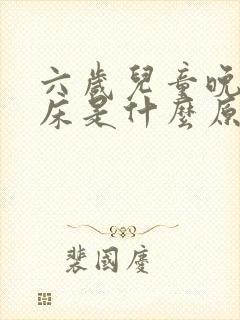 六歲兒童晚
床是什麼原
裴國慶